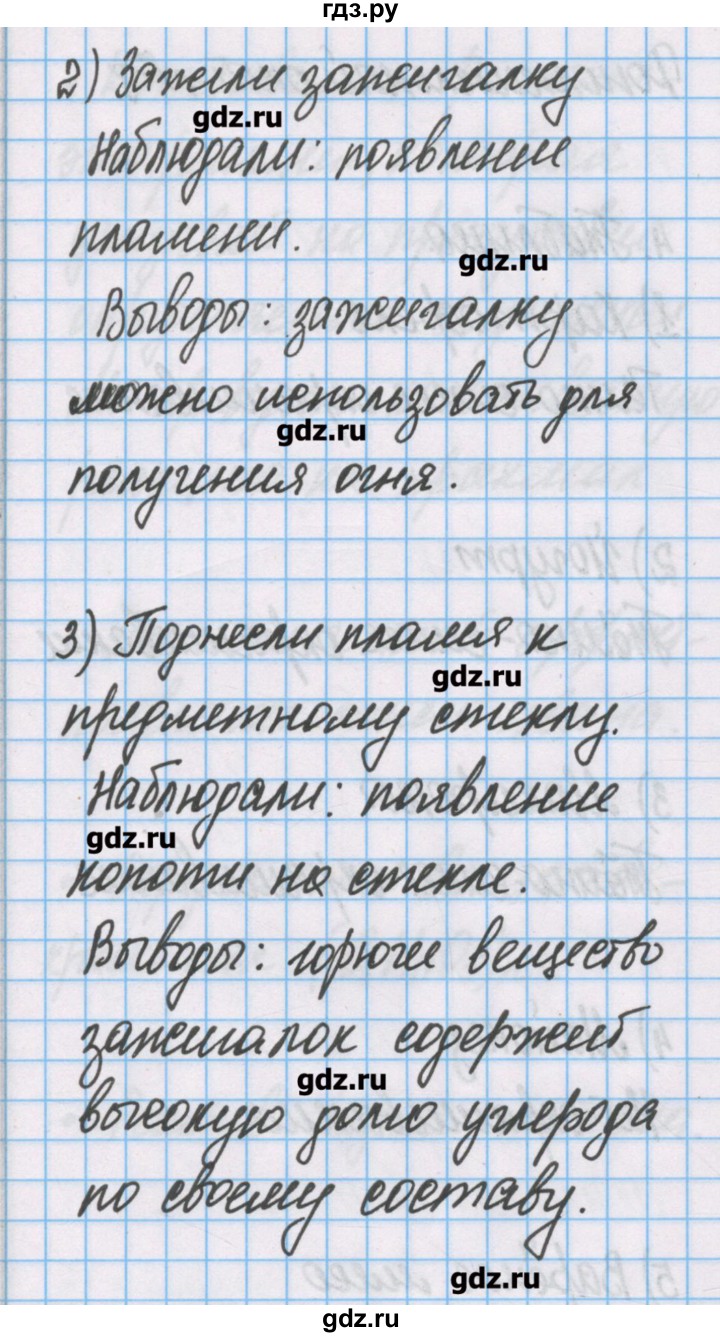 гдз.ру
2) Зажгли зажигалку
gdz.ru
Наблюдали: появление
пламени.
gdz.ru
Выводы: зажигалку
можно использовать для
gdz.ru
получения огня.
3) Поднесли пламя к
gdz.ru
предметному стеклу.
Наблюдали: появление
gdz.ru
копоти на стекле.
Выводы: горючее вещество
зажигалок содержит
gdz.ru
высокую долю углерода
по своему составу.
gdz.ru
gdz.ru